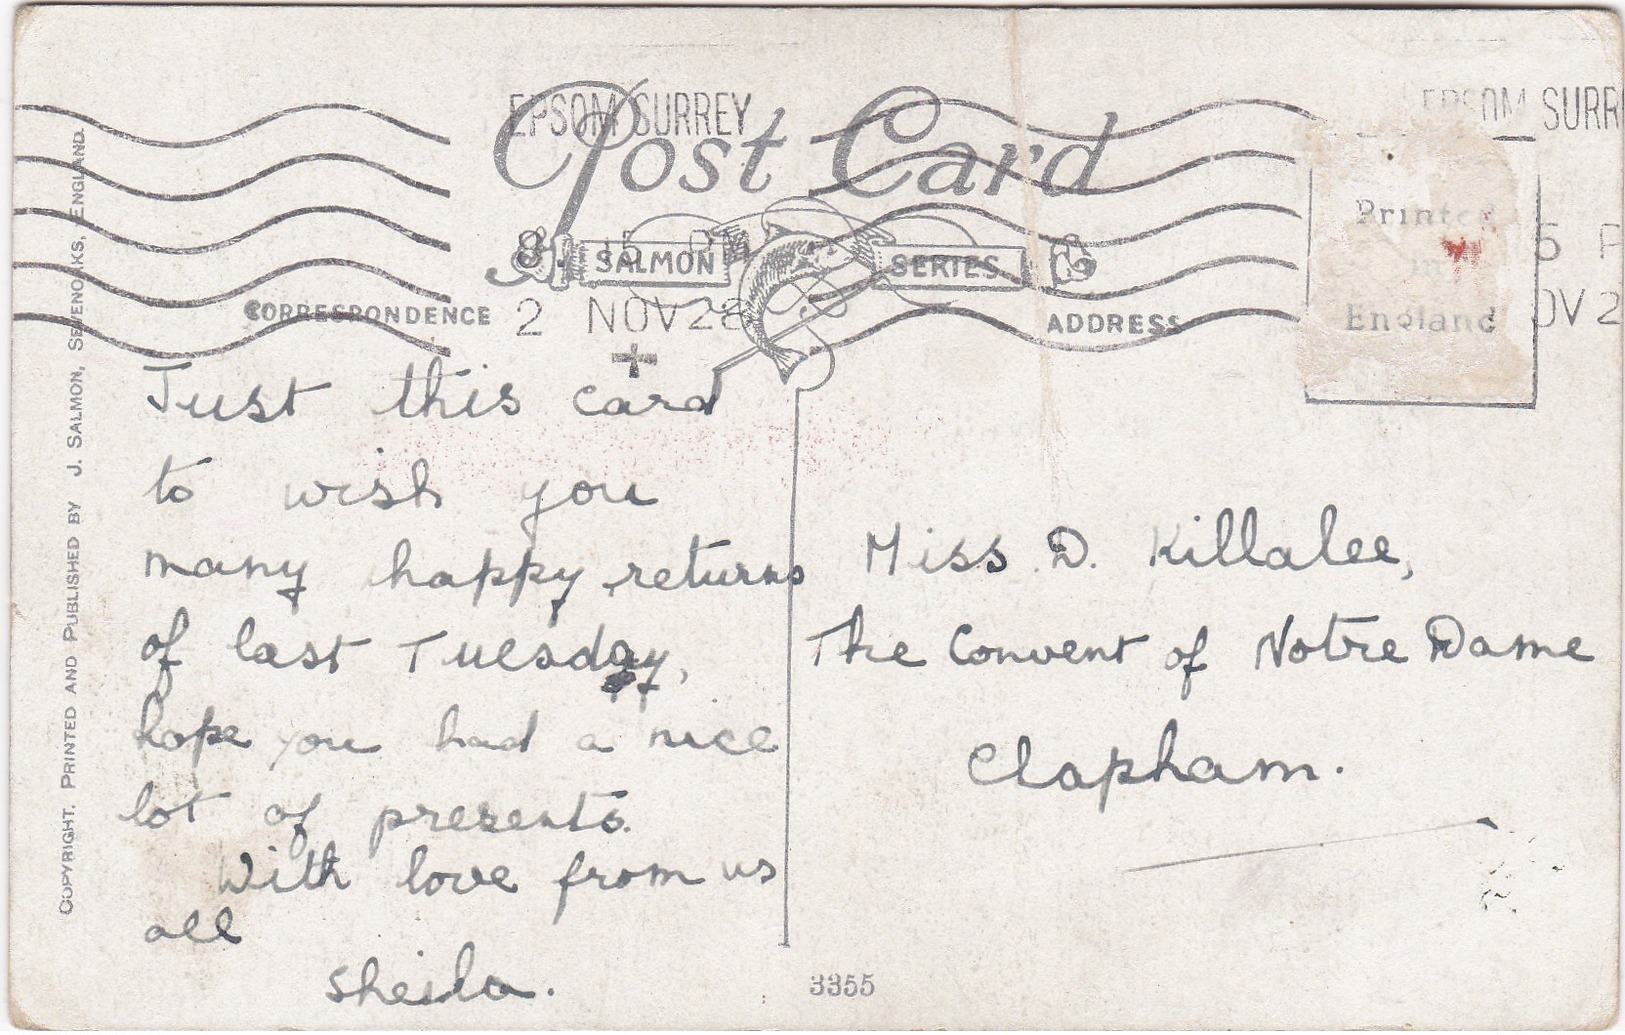 EPSOM SURREY
Post Card
EPSOM SURR
SALMON SERIES
2 NOV 28
CORRESPONDENCE
ADDRESS
Printed
in
England
5 P
OV 2
Just this card
to wish you
many happy returns
of last Tuesday,
hope you had a nice
lot of presents.
With love from us
all
Sheila.
Miss D. Killalee,
The Convent of Notre Dame
Clapham.
3355
COPYRIGHT. PRINTED AND PUBLISHED BY J. SALMON, SEVENOAKS, ENGLAND.